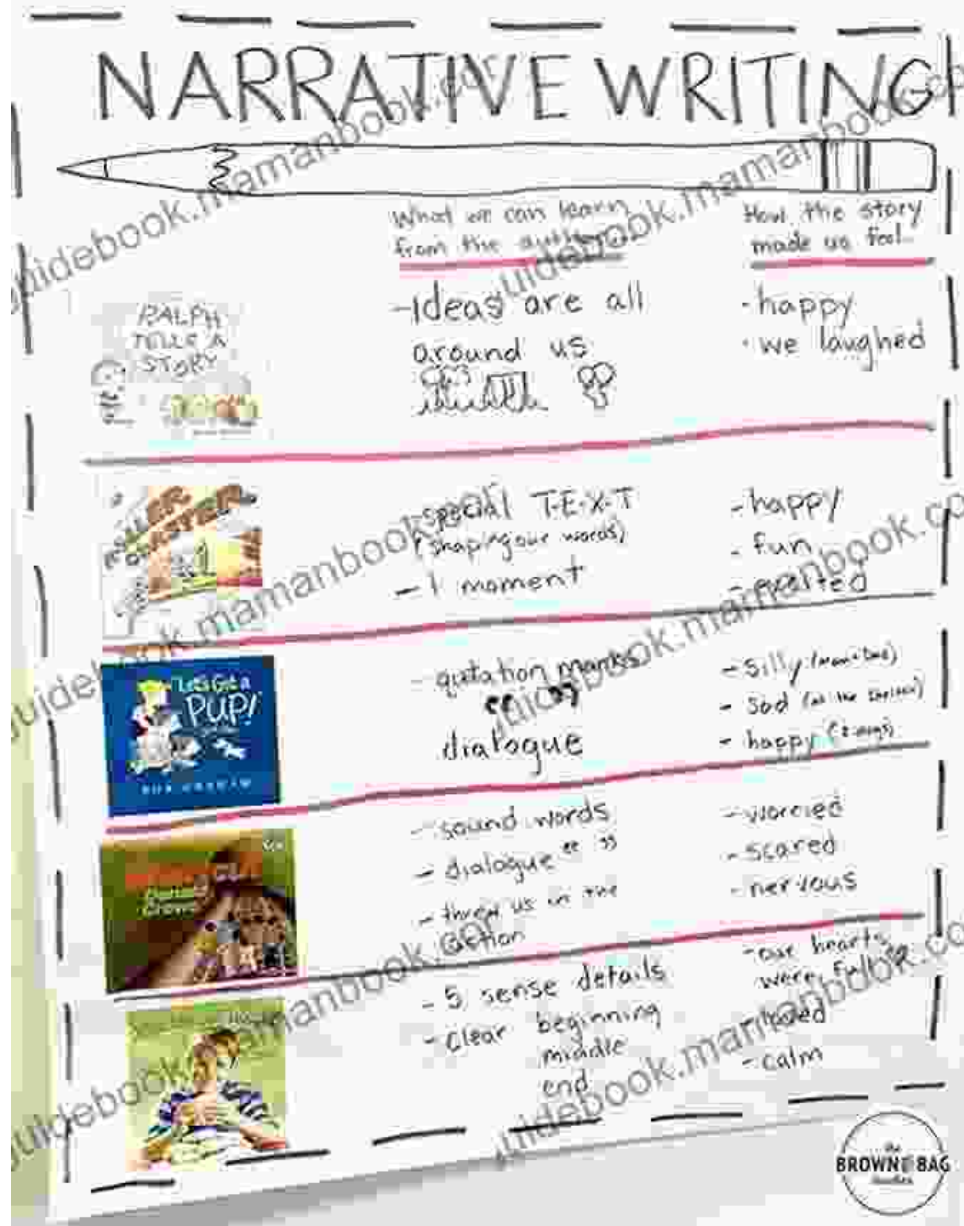 NARRATIVE WRITING
What we can learn
from the author...
How the story
made us feel...
RALPH
TELLS A
STORY
-Ideas are all
around us
- happy
- we laughed
ROLLER
COASTER
special T-E-X-T
(shaping our words)
- 1 moment
- happy
- fun
- excited
Let's Get a
PUP!
BOB GRAHAM
- qutation marks
“ ”
dialogue
- silly
- sad
- happy
- sound words
- dialogue “ ”
- threw us in the
action
- worried
- scared
- nervous
- 5 sense details
- clear beginning
middle
end
- our hearts
were full
- loved
- calm
the
BROWN BAG
teacher
guidebook.mamanbook.com